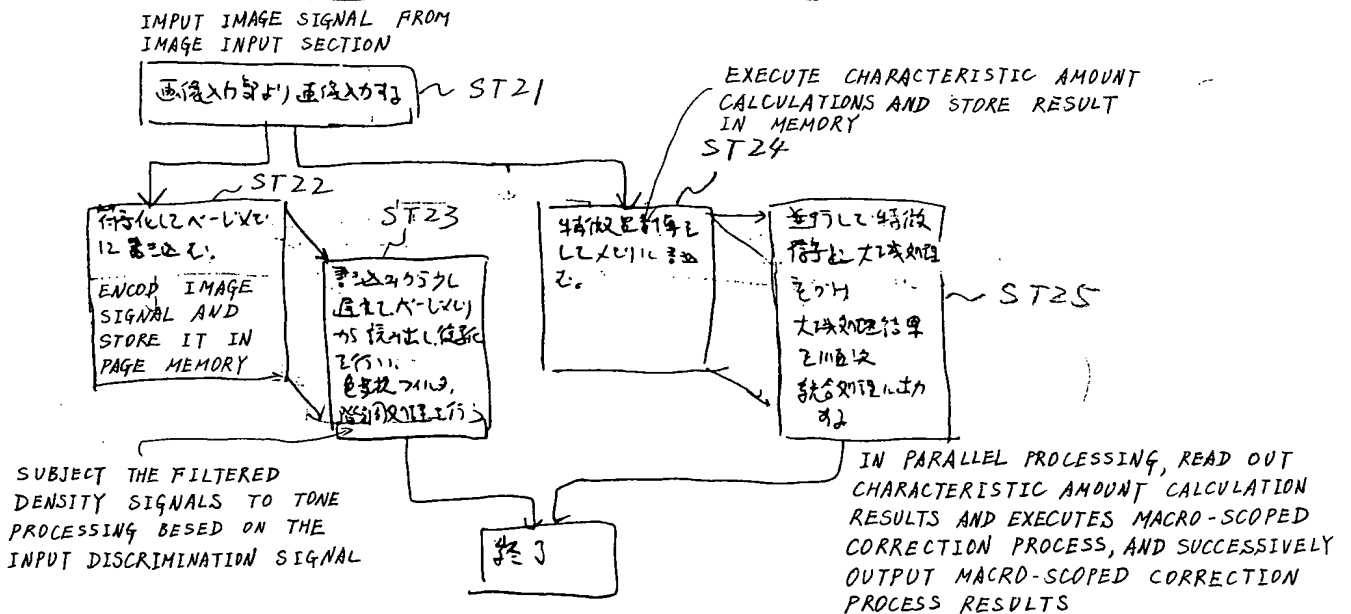 IMPUT IMAGE SIGNAL FROM
IMAGE INPUT SECTION
画像入力部より画像入力する
ST21
EXECUTE CHARACTERISTIC AMOUNT
CALCULATIONS AND STORE RESULT
IN MEMORY
ST24
ST22
符号化してページメモリ
に書き込む。
ENCOD IMAGE
SIGNAL AND
STORE IT IN
PAGE MEMORY
ST23
ページメモリ
から読み出し
を行い、
色変換フィルタ、
階調処理を行う
特徴量計算を
してメモリに書込
む。
並行して特徴
大域処理
大域処理結果
を順次
統合処理に出力
する
ST25
SUBJECT THE FILTERED
DENSITY SIGNALS TO TONE
PROCESSING BESED ON THE
INPUT DISCRIMINATION SIGNAL
終了
IN PARALLEL PROCESSING, READ OUT
CHARACTERISTIC AMOUNT CALCULATION
RESULTS AND EXECUTES MACRO-SCOPED
CORRECTION PROCESS, AND SUCCESSIVELY
OUTPUT MACRO-SCOPED CORRECTION
PROCESS RESULTS